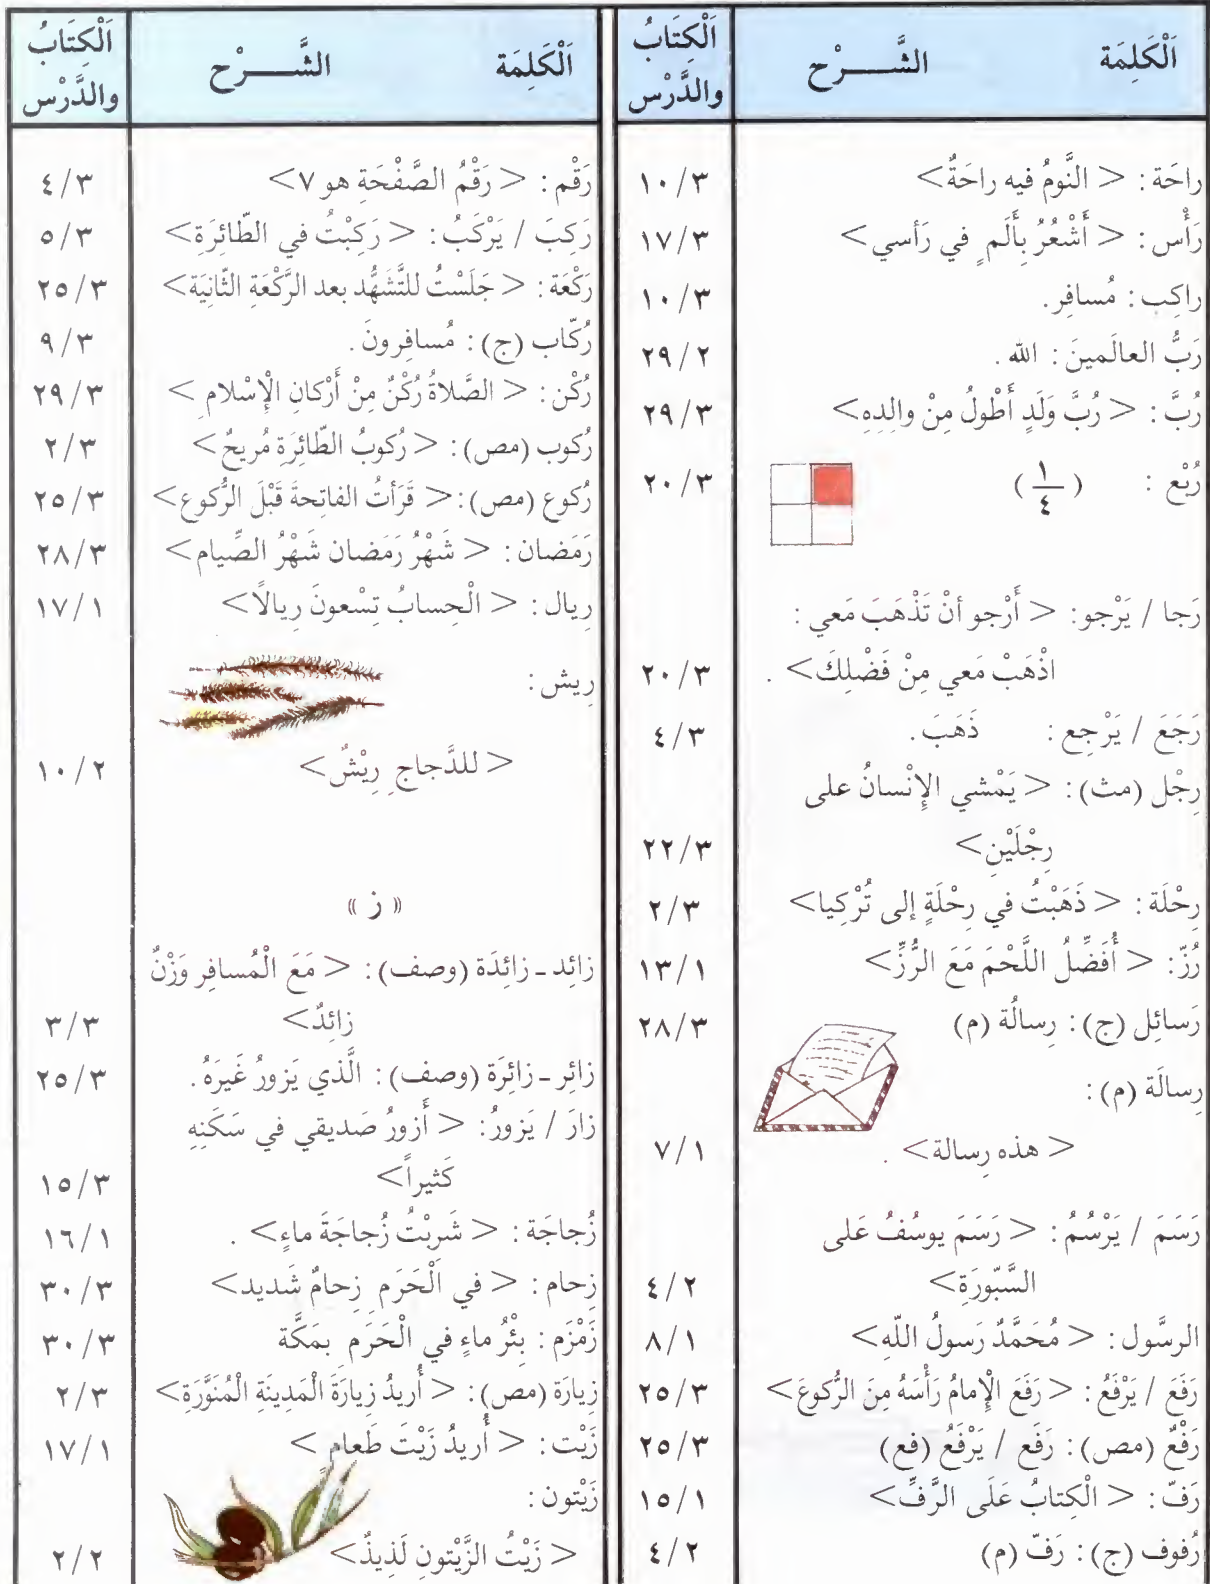 اَلْكَلِمَة الشَّـــرْح اَلْكِتَابُ والدَّرْس
راحَة : < النَّومُ فيه راحَةٌ> ١٠/٣
رَأْس : < أَشْعُرُ بِأَلَمٍ في رَأسي> ١٧/٣
راكِب : مُسافِر . ١٠/٣
رَبُّ العالَمينَ : اللّه . ٢٩/٢
رُبَّ : < رُبَّ وَلَدٍ أَطْولُ مِنْ والِدِهِ> ٢٩/٣
رُبْع : ( ١/٤ ) ٢٠/٣
رَجا / يَرْجو : < أَرْجو أنْ تَذْهَبَ مَعي :
اذْهَبْ مَعي مِنْ فَضْلِكَ> . ٢٠/٣
رَجَعَ / يَرْجِع : ذَهَبَ . ٤/٣
رِجْل (مث) : < يَمْشي الإِنْسانُ على
رِجْلَيْنِ> ٢٢/٣
رِحْلَة : < ذَهَبْتُ في رِحْلَةٍ إلى تُرْكِيا> ٢/٣
رُزّ : < أُفَضِّلُ اللَّحْمَ مَعَ الرُّزِّ> ١٣/١
رَسائِل (ج) : رِسالُة (م) ٢٨/٣
رِسالَة (م) :
< هذه رِسالة> . ٧/١
رَسَمَ / يَرْسُمُ : < رَسَمَ يوسُفُ عَلى
السَّبّورَةِ> ٤/٢
الرسَّول : < مُحَمَّدٌ رَسولُ اللّهِ> ٨/١
رَفَعَ / يَرْفَعُ : < رَفَعَ الْإِمامُ رَأْسَهُ مِنَ الرُّكوعَ> ٢٥/٣
رَفْعٌ (مص) : رَفَع / يَرْفَعُ (فع) ٢٥/٣
رَفّ : < الْكِتابُ عَلَى الرَّفِّ> ١٥/١
رُفوف (ج) : رَفّ (م) ٤/٢
اَلْكَلِمَة الشَّـــرْح اَلْكِتَابُ والدَّرْس
رَقْم : < رَقْمُ الصَّفْحَةِ هو ٧> ٤/٣
رَكِبَ / يَرْكَبُ : < رَكِبْتُ في الطّائِرَةِ> ٥/٣
رَكْعَة : < جَلَسْتُ للتَّشَهُّد بعد الرَّكْعَةِ الثّانِيَة> ٢٥/٣
رُكّاب (ج) : مُسافِرونَ . ٩/٣
رُكْن : < الصَّلاةُ رُكْنٌ مِنْ أَرْكانِ الْإِسْلامِ > ٢٩/٣
رُكوب (مص) : < رُكوبُ الطّائِرَةِ مُريحٌ> ٢/٣
رُكوع (مص) : < قَرَأتُ الفاتِحةَ قَبْلَ الرُّكوع> ٢٥/٣
رَمَضان : < شَهْرُ رَمَضان شَهْرُ الصِّيام> ٢٨/٣
رِيال : < الْحِسابُ تِسْعونَ رِيالًا> ١٧/١
رِيش :
< للدَّجاجِ رِيْشٌ> ١٠/٢
« ز »
زائِد - زائِدَة (وصف) : < مَعَ الْمُسافِرِ وَزْنٌ
زائِدٌ> ٣/٣
زائِر - زائِرَة (وصف) : الَّذي يَزورُ غَيرَهُ . ٢٥/٣
زارَ / يَزورُ : < أَزورُ صَديقي في سَكَنِهِ
كَثيراً> ١٥/٣
زُجاجَة : < شَرِبْتُ زُجاجَةَ ماءٍ> . ١٦/١
زِحام : < في الْحَرَمِ زِحامٌ شَديد> ٣٠/٣
زَمْزَم : بِئْرُ ماءٍ في الْحَرَمِ بمَكَّة ٣٠/٣
زيارَة (مص) : < أُريدُ زِيارَةَ الْمَدِينَةِ الْمُنَوَّرَةِ> ٢/٣
زَيْت : < أُريدُ زَيْتَ طَعامٍ > ١٧/١
زَيْتون :
< زَيْتُ الزَّيْتونِ لَذِيذٌ> ٢/٢